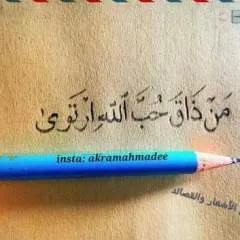 مَنْ ذَاقَ حُبَّ ٱللّٰهِ اِرْتَوىٰ
insta: akramahmadee
الأشعار والقصائد